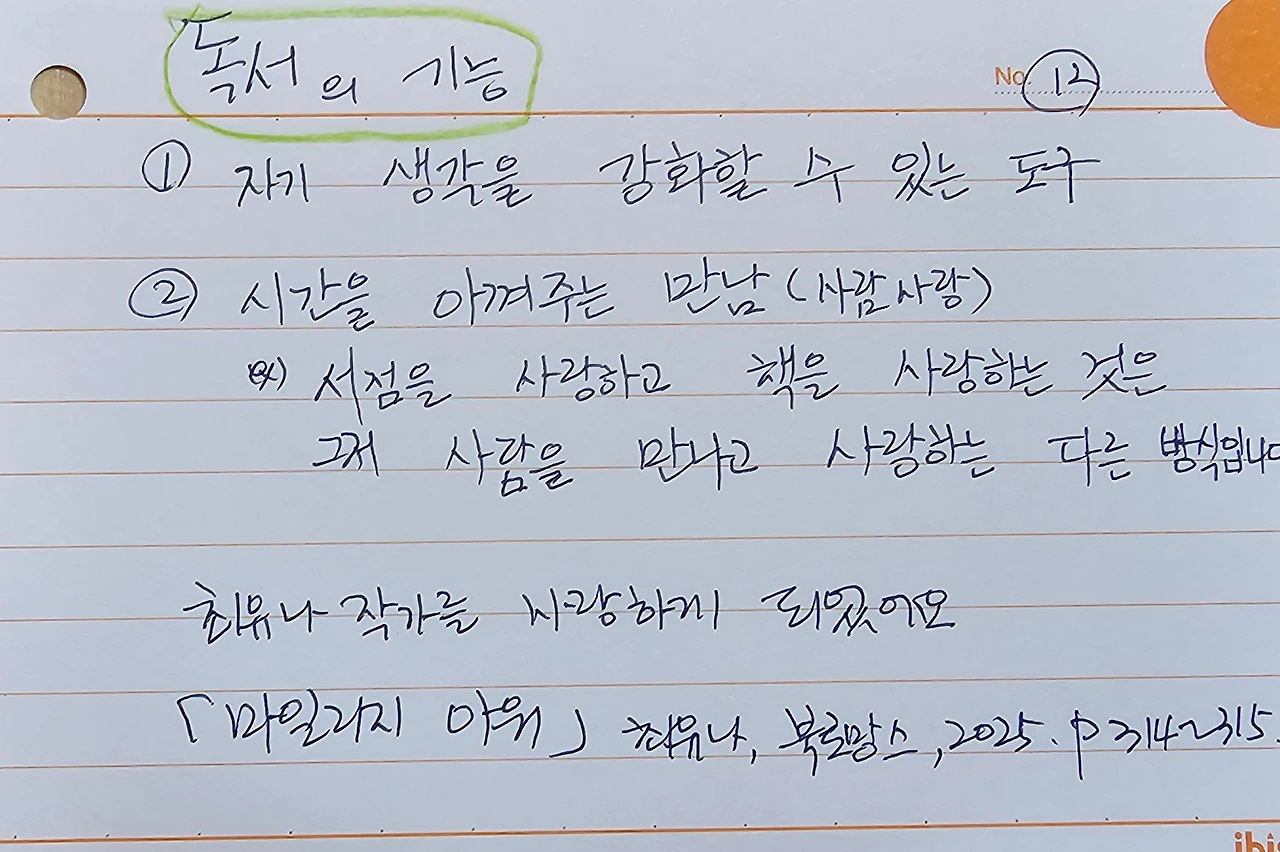 독서의 기능
No. 12
① 자기 생각을 강화할 수 있는 도구
② 시간을 아껴주는 만남(사람사랑)
예) 서점을 사랑하고 책을 사랑하는 것은
그저 사람을 만나고 사랑하는 다른 방식입니다
최유나 작가를 사랑하게 되었어요
「마일리지 아워」 최유나, 북로망스, 2025. p314~315.